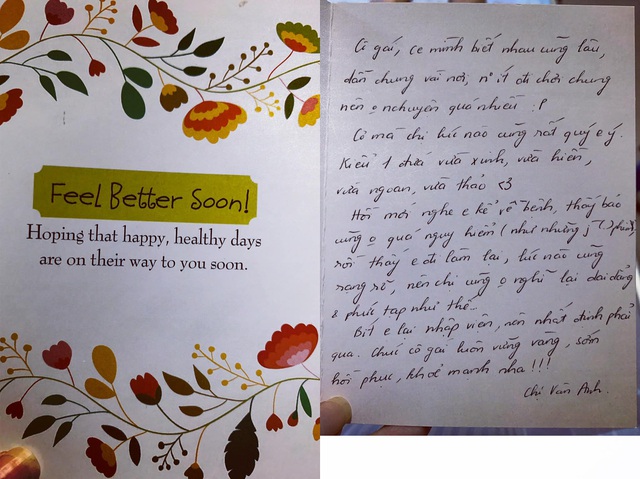 Feel Better Soon!
Hoping that happy, healthy days
are on their way to you soon.
Cô gái, ce mình biết nhau cũng lâu,
dẫn chung vài nơi, n' ít đi chơi chung
nên o nchuyện quá nhiều :P
Cơ mà chị lúc nào cũng rất quý e ý.
Kiểu 1 đứa vừa xinh, vừa hiền,
vừa ngoan, vừa thảo <3
Hồi mới nghe e kể về bệnh, thấy bảo
cũng o quá nguy hiểm (như những
rồi thấy e đi làm lại, lúc nào cũng
rạng rỡ, nên chị cũng o nghĩ lại dai dẳng
& phức tạp như thế...
Biết e lại nhập viện, nên nhất định phải
qua. Chúc cô gái luôn vững vàng, sớm
hồi phục, khoẻ mạnh nha !!!
Chị Vân Anh.